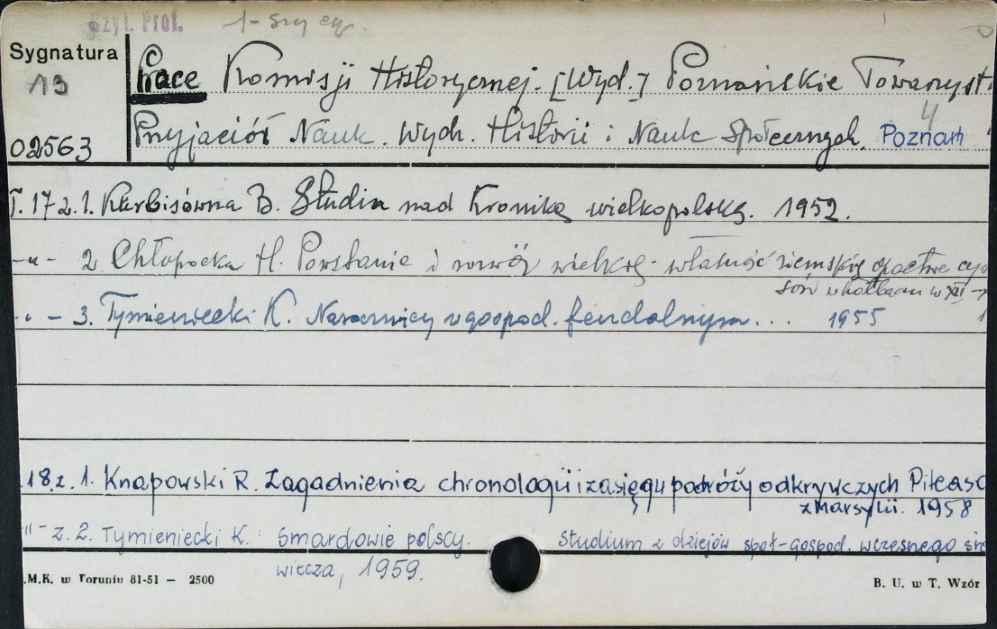 Czyt. Prof. 1-szy eg.
Sygnatura
13
02563
Prace Komisji Historycznej. [Wyd.] Poznańskie Towarzyst.
Przyjaciół Nauk. Wydz. Historii i Nauk Społecznych. Poznań 4
T. 17 z. 1. Kürbisówna B. Studia nad Kroniką wielkopolską. 1952.
-"- 2 Chłopocka H. Powstanie i rozwój wielkiej własności ziemskiej opactwa cy
sów w Kołbaczu w XII -
" - 3. Tymieniecki K. Narocznicy w gospod. feudalnym... 1955
18 z. 1. Knapowski R. Zagadnienia chronologii i zasięgu podróży odkrywczych Piteasa
z Marsylii. 1958
-"- z. 2. Tymieniecki K. Smardowie polscy. Studium z dziejów społ-gospod. wczesnego śre
wiecza, 1959.
.M.K. w Toruniu 81-51 — 2500
B. U. w T. Wzór